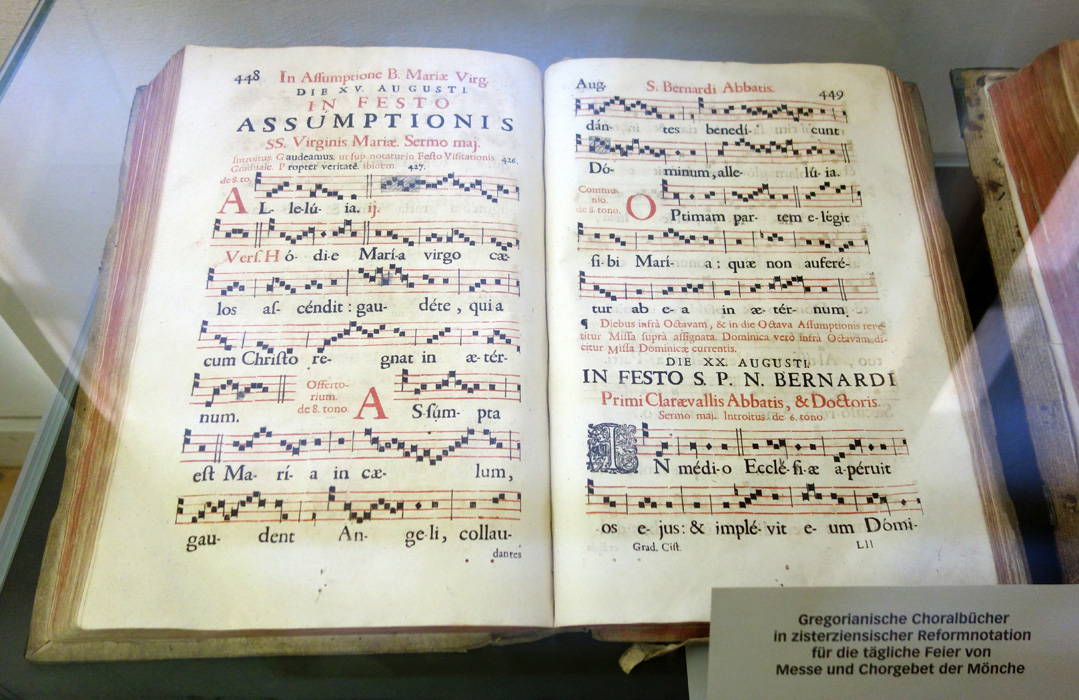 448 In Assumptione B. Mariæ Virg.
DIE XV. AUGUSTI.
IN FESTO
ASSUMPTIONIS
SS. Virginis Mariæ. Sermo maj.
Introitus. Gaudeamus. ut sup. notatur in Festo Visitationis. 426.
Graduale. Propter veritatē. ibidem. 427.
de 8. to.
AL- le-lú- ia. ij.
Vers. Hó- di-e María virgo cæ-
los as- céndit: gau- déte, quia
cum Christo re- gnat in æ-tér-
num.
Offerto-
rium.
de 8. tono.
ASsúm- pta
est Ma- rí- a in cæ- lum,
gau- dent An- ge-li, collau-
dantes
Aug. S. Bernardi Abbatis. 449
dán- tes benedí- cunt
Dó- minum, alle- lú- ia.
Commu-
nio.
de 8. tono.
OPtimam par- tem e-légit
si-bi Marí- a: quæ non auferé-
tur ab e-a in æ-tér- num.
¶ Diebus infrà Octavam, & in die Octava Assumptionis repe-
titur Missa suprà assignata. Dominica verò infrà Octavam di-
citur Missa Dominicæ currentis.
DIE XX. AUGUSTI.
IN FESTO S. P. N. BERNARDI
Primi Clarævallis Abbatis, & Doctoris.
Sermo maj. Introitus. de 6. tono.
IN médi-o Ecclé-si-æ a-péruit
os e-jus: & implé-vit e- um Dómi-
Grad. Cist. LII
Gregorianische Choralbücher
in zisterziensischer Reformnotation
für die tägliche Feier von
Messe und Chorgebet der Mönche